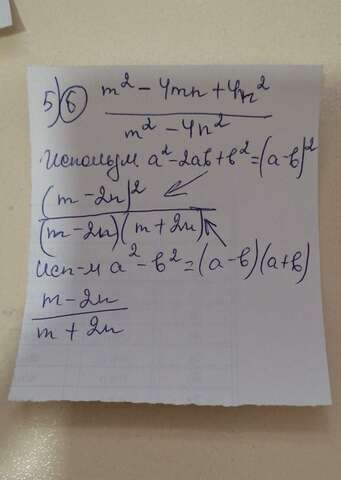 5) б m² - 4mn + 4n²
m² - 4n²
Использум a² - 2ab + b² = (a - b)²
(m - 2n)²
(m - 2n) (m + 2n)
Исп-м a² - b² = (a - b) (a + b)
m - 2n
m + 2n